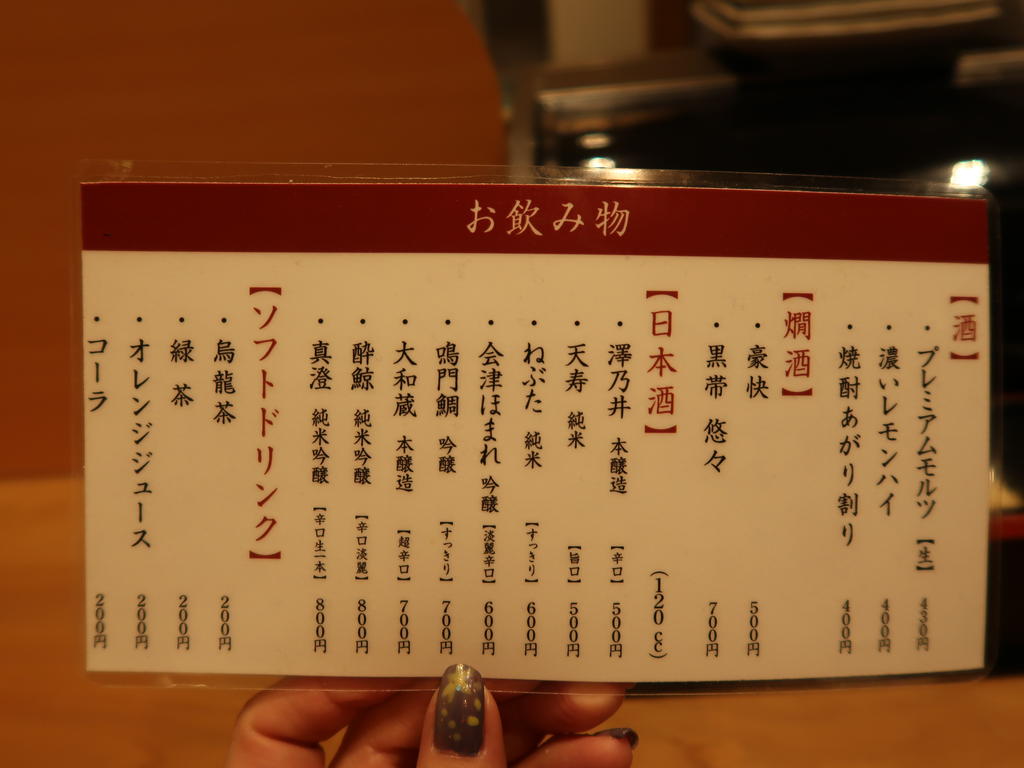 お飲み物
【酒】
・プレミアムモルツ【生】 430円
・濃いレモンハイ 400円
・焼酎あがり割り 400円
【燗酒】
・豪快 500円
・黒帯 悠々 700円
【日本酒】 (120cc)
・澤乃井 本醸造 【辛口】 500円
・天寿 純米 【旨口】 500円
・ねぶた 純米 【すっきり】 600円
・会津ほまれ 吟醸 【淡麗辛口】 600円
・鳴門鯛 吟醸 【すっきり】 700円
・大和蔵 本醸造 【超辛口】 700円
・酔鯨 純米吟醸 【辛口淡麗】 800円
・真澄 純米吟醸 【辛口生一本】 800円
【ソフトドリンク】
・烏龍茶 200円
・緑茶 200円
・オレンジジュース 200円
・コーラ 200円